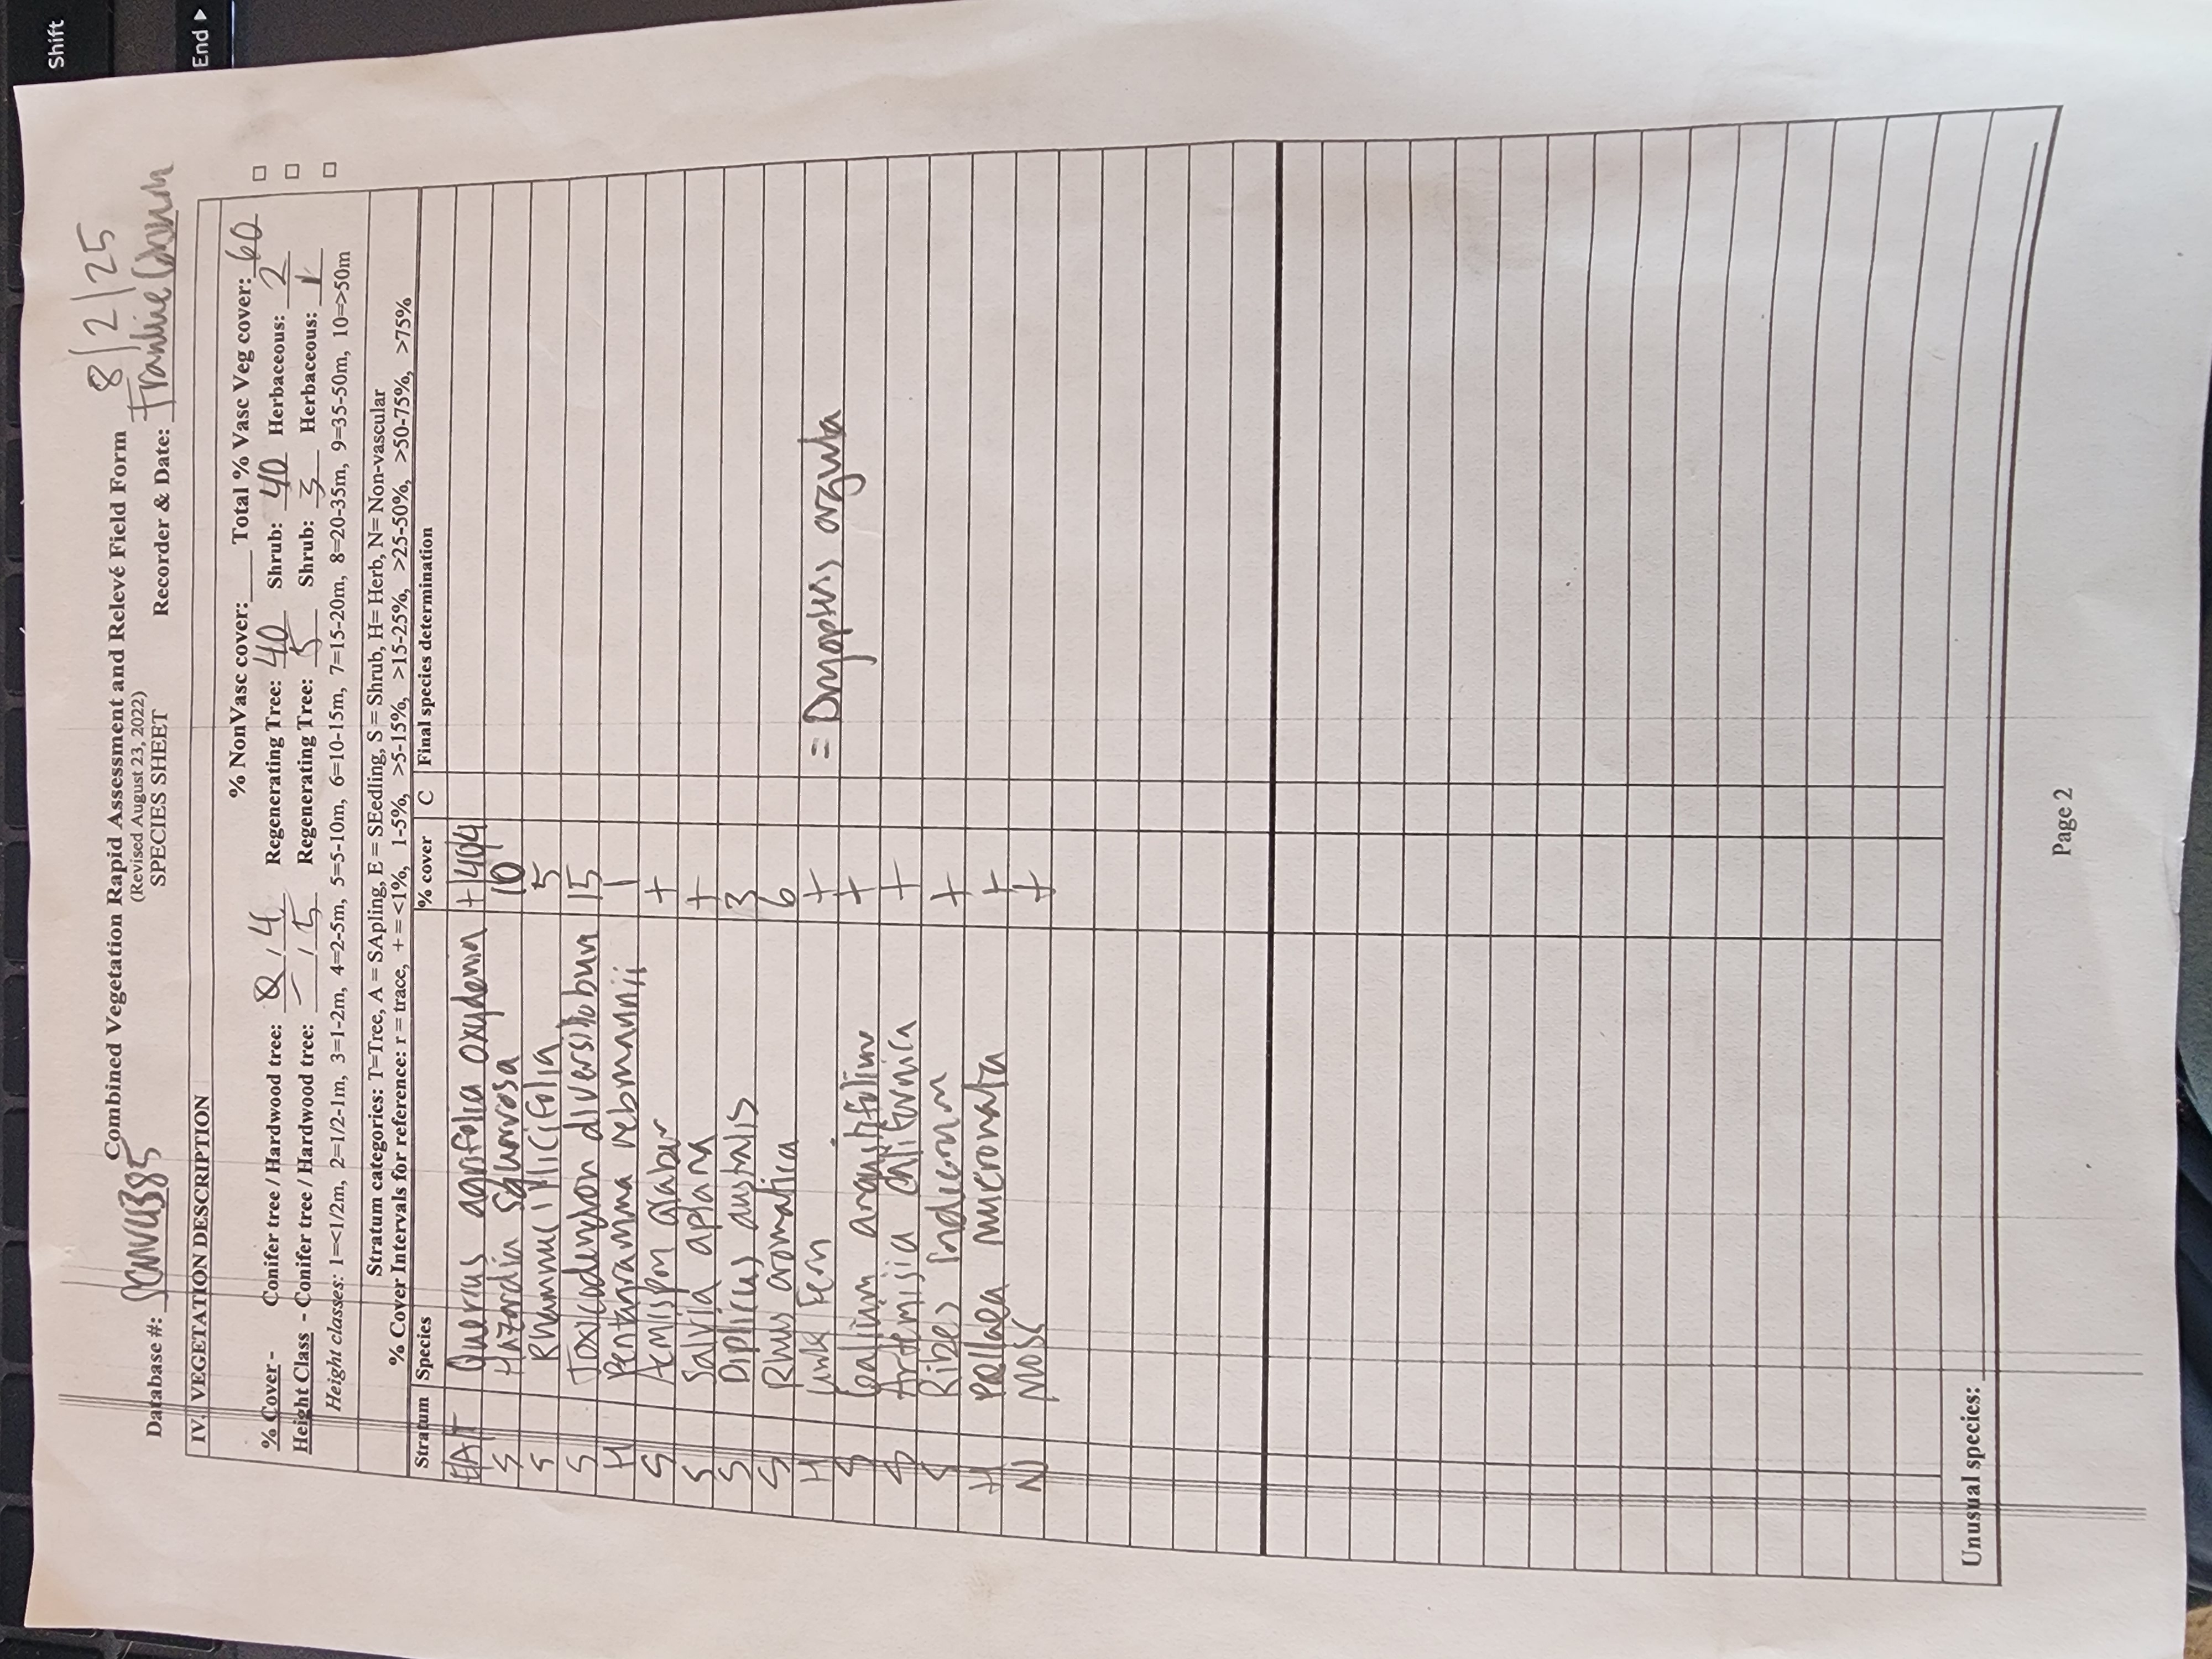 Shift
End ▶
Combined Vegetation Rapid Assessment and Relevé Field Form
(Revised August 23, 2022)
8/2/25
SPECIES SHEET
Database #: Recorder & Date: Frankie
IV. VEGETATION DESCRIPTION
% NonVasc cover:____ Total % Vasc Veg cover: 60 □
% Cover - Conifer tree / Hardwood tree: 0 / 4 Regenerating Tree: 40 Shrub: 40 Herbaceous: 2 □
Height Class - Conifer tree / Hardwood tree: - / 5 Regenerating Tree: 5 Shrub: 3 Herbaceous: 1 □
Height classes: 1=<1/2m, 2=1/2-1m, 3=1-2m, 4=2-5m, 5=5-10m, 6=10-15m, 7=15-20m, 8=20-35m, 9=35-50m, 10=>50m
Stratum categories: T=Tree, A = SApling, E = SEedling, S = Shrub, H= Herb, N= Non-vascular
% Cover Intervals for reference: r = trace, + = <1%, 1-5%, >5-15%, >15-25%, >25-50%, >50-75%, >75%
Stratum Species % cover C Final species determination
E/A/T Quercus agrifolia oxydenia +/40/4
S Hazardia squarrosa 10
S Rhamnus illicifolia 5
S Toxicodendron diversilobum 15
H Pentagramma rebmannii 1
S Acmispon glaber +
S Salvia apiana +
S Diplicus australis 3
S Rhus aromatica 6
H Unk Fern + = Dryopteris arguta
S Galium angustifolium +
S Artemisia californica +
S Ribes indecorum +
H Pellaea mucronata +
N Moss +
Unusual species:
Page 2